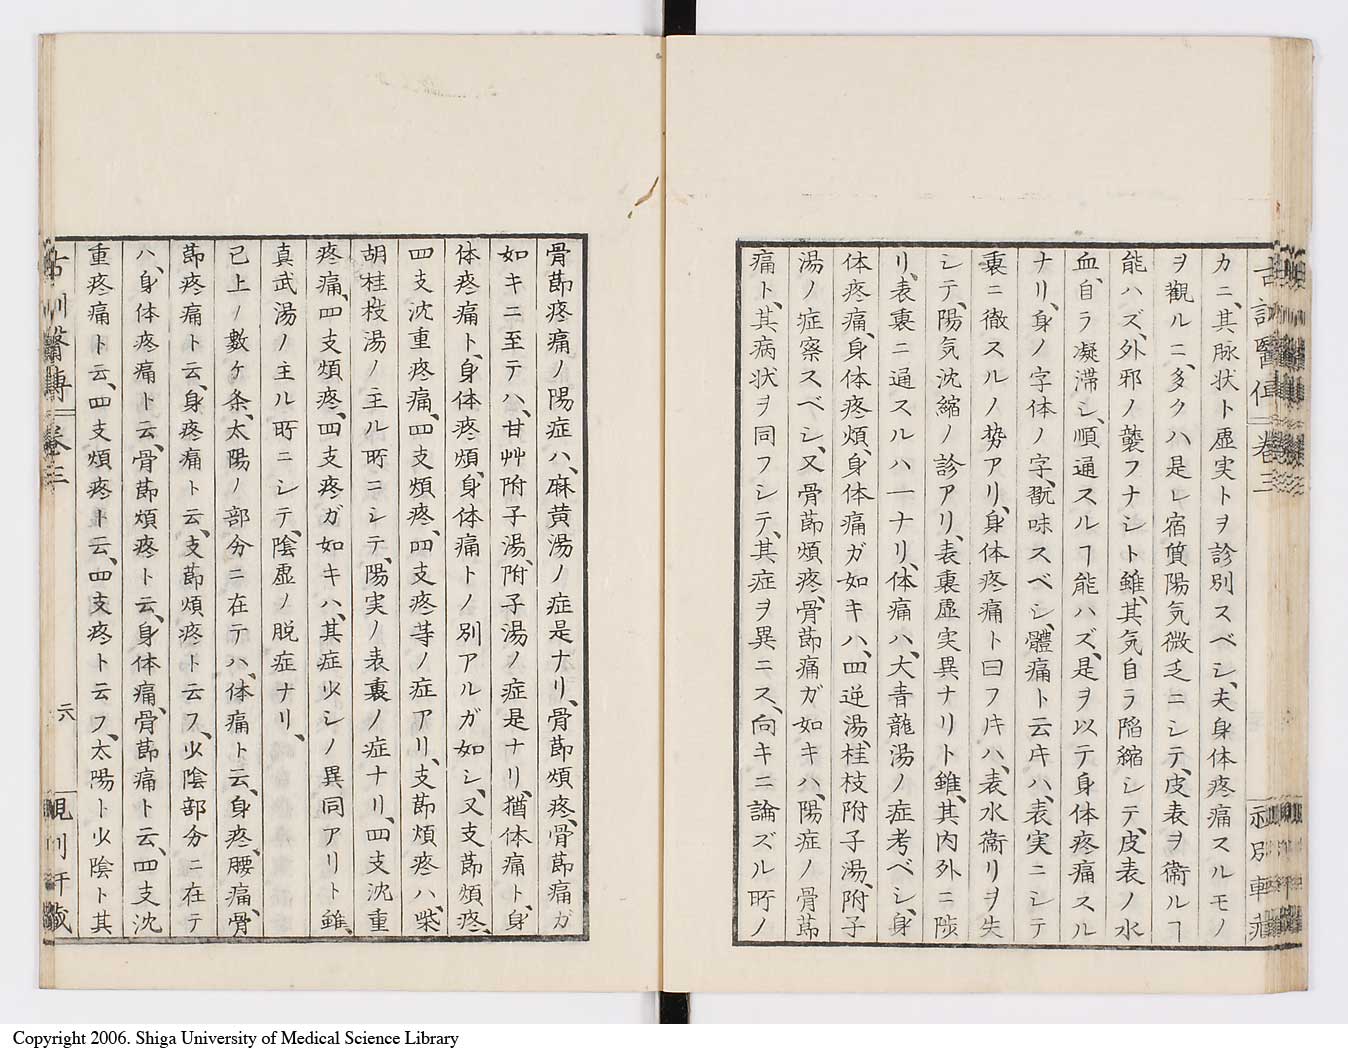 カニ、其脉状ト虚実トヲ診別スベシ、夫身体疼痛スルモノ
ヲ觀ルニ、多クハ是レ宿質陽気微乏ニシテ、皮表ヲ衞ルヿ
能ハズ、外邪ノ襲フナシト雖、其気自ラ陷縮シテ、皮表ノ水
血、自ラ凝滞シ、順通スルヿ能ハズ、是ヲ以テ身体疼痛スル
ナリ、身ノ字体ノ字、翫味スベシ、體痛ト云𪜈ハ、表実ニシテ
裏ニ徹スルノ势アリ、身体疼痛ト曰フ𪜈ハ、表水衞リヲ失
シテ、陽気沈縮ノ診アリ、表裏虚実異ナリト雖、其内外ニ陟
リ、表裏ニ通スルハ一ナリ、体痛ハ、大青龍湯ノ症考ベシ、身
体疼痛、身体疼煩、身体痛ガ如キハ、四逆湯、桂枝附子湯、附子
湯ノ症察スベシ、又骨莭煩疼、骨莭痛ガ如キハ、陽症ノ骨莭
痛ト、其病状ヲ同フシテ、其症ヲ異ニス、向キニ論ズル所ノ
骨莭疼痛ノ陽症ハ、麻黄湯ノ症是ナリ、骨莭煩疼、骨莭痛ガ
如キニ至テハ、甘艸附子湯、附子湯ノ症是ナリ、猶体痛ト、身
体疼痛ト、身体疼煩、身体痛トノ別アルガ如シ、又支莭煩疼、
四支沈重疼痛、四支煩疼、四支疼等ノ症アリ、支莭煩疼ハ、柴
胡桂枝湯ノ主ル所ニシテ、陽実ノ表裏ノ症ナリ、四支沈重
疼痛、四支煩疼、四支疼ガ如キハ、其症少シノ異同アリト雖、
真武湯ノ主ル所ニシテ、陰虚ノ脱症ナリ、
已上ノ數ケ条、太陽ノ部分ニ在テハ、体痛ト云、身疼、腰痛、骨
莭疼痛ト云、身疼痛ト云、支莭煩疼ト云フ、少陰部分ニ在テ
ハ、身体疼痛ト云、骨莭煩疼ト云、身体痛、骨莭痛ト云、四支沈
重疼痛ト云、四支煩疼ト云、四支疼ト云フ、太陽ト少陰ト其
卷三
六
Copyright 2006. Shiga University of Medical Science Library